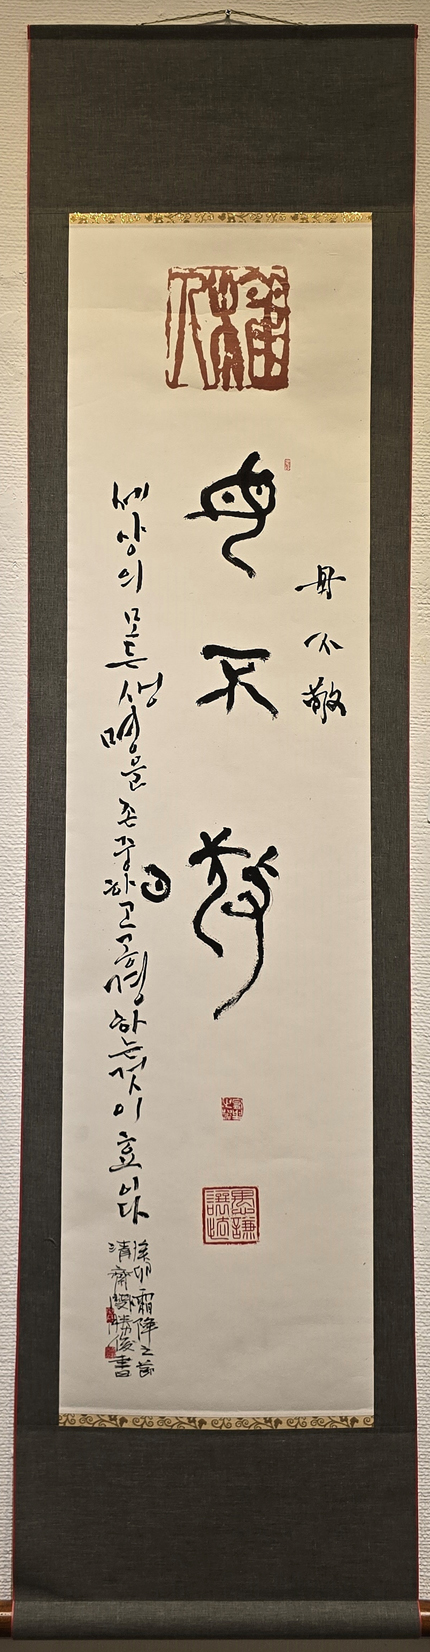 毋不敬
毋不敬
세상의 모든 생명을 존중하고 공경하는 것이 효이다
癸卯霜降之節
清齋 勝俊書